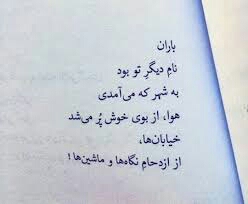 باران
نامِ دیگرِ تو بود
به شهر که می‌آمدی
هوا، از بوی خوش پُر می‌شد
خیابان‌ها،
از ازدحامِ نگاه‌ها و ماشین‌ها!